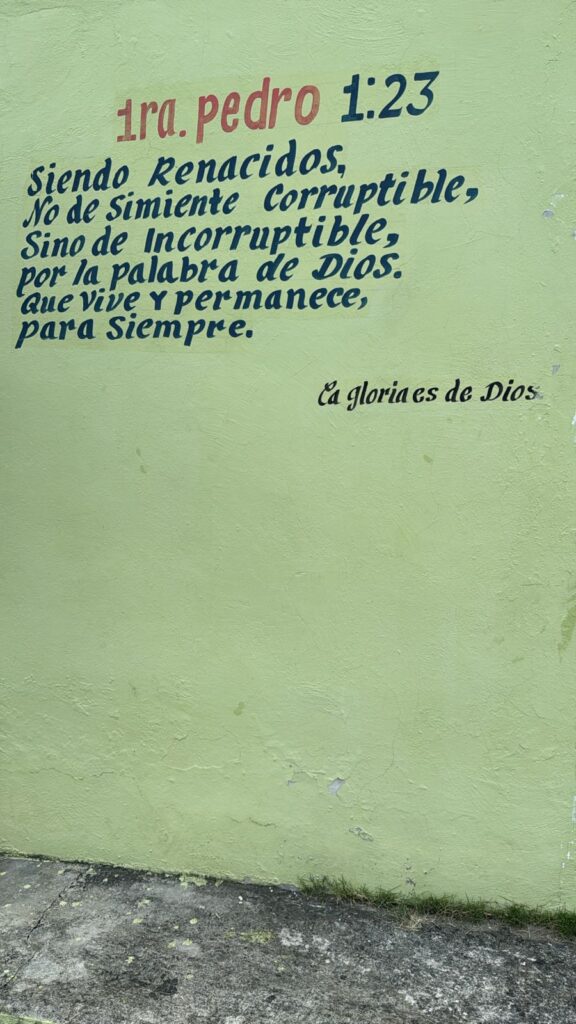 1ra. pedro 1:23
Siendo Renacidos,
No de Simiente Corruptible,
Sino de Incorruptible,
por la palabra de Dios.
Que Vive Y permanece,
para Siempre.
La gloria es de Dios